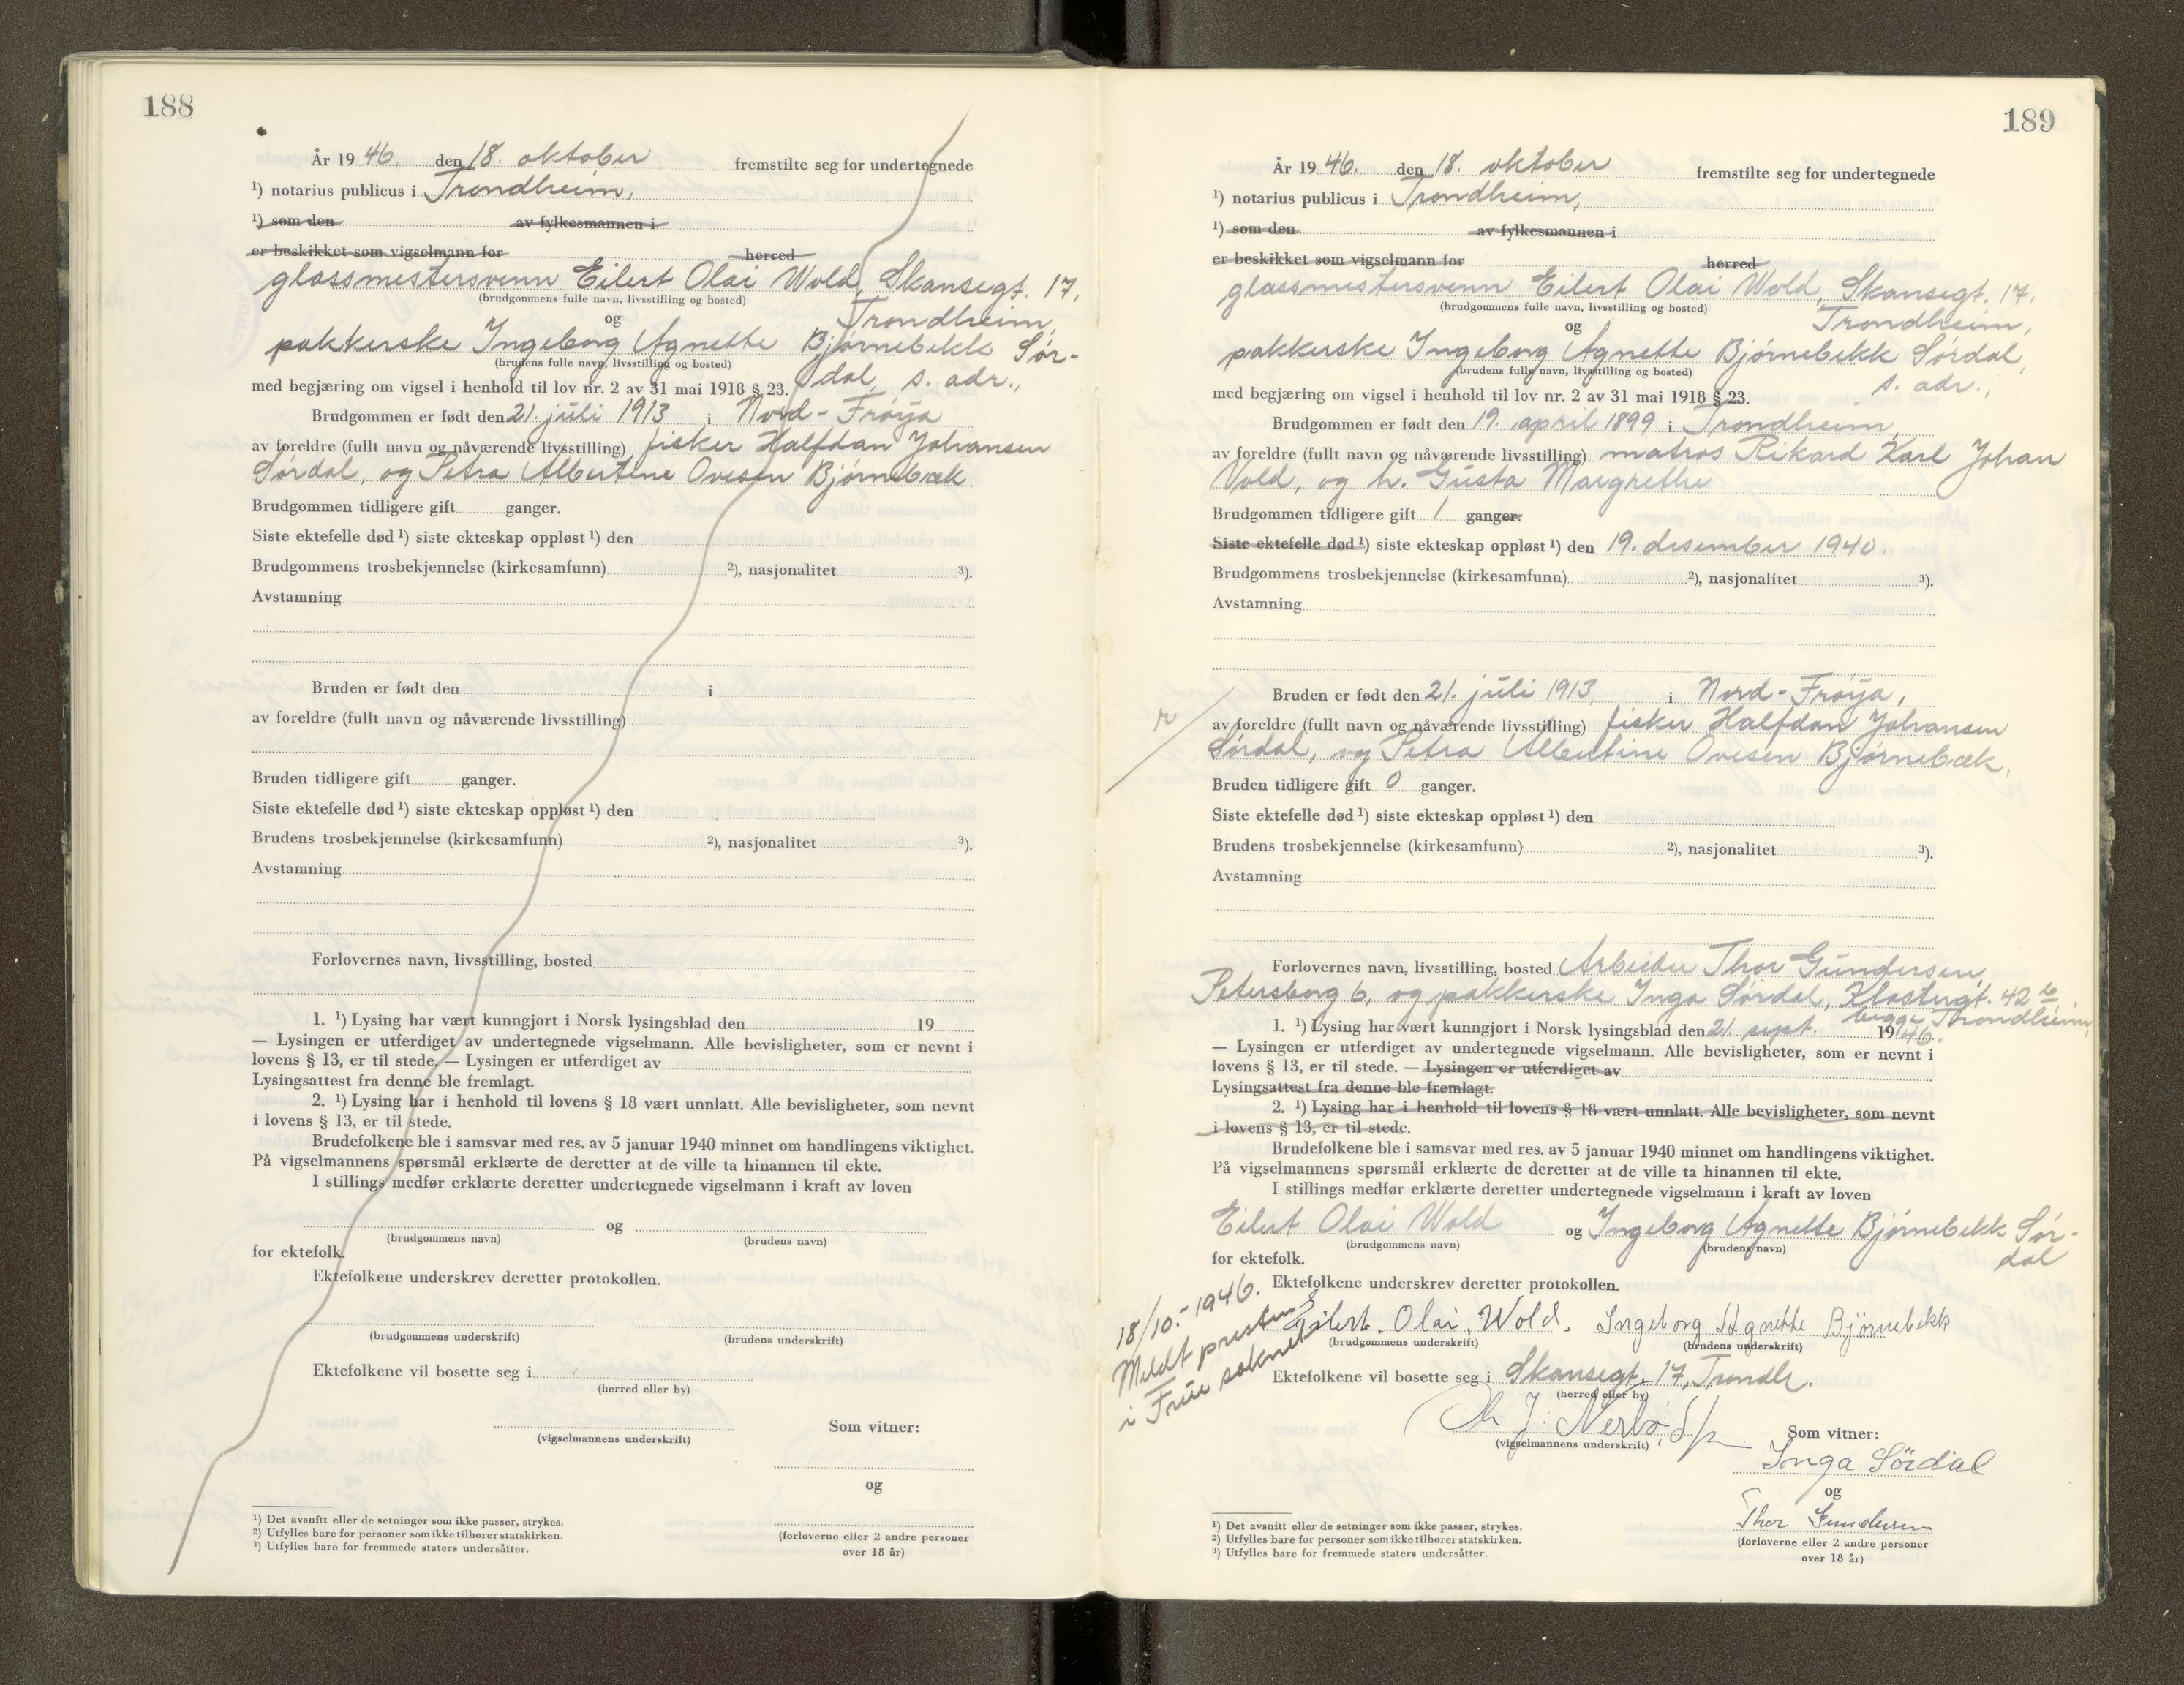 188
År 19 46. den 18. oktober fremstilte seg for undertegnede
¹) notarius publicus i Trondheim,
¹) som den av fylkesmannen i
er beskikket som vigselmann for herred
glassmestersvenn Eilert Olai Wold, Skansegt. 17,
(brudgommens fulle navn, livsstilling og bosted)
og Trondheim,
pakkerske Ingeborg Agnette Bjørnebekk Sør-
(brudens fulle navn, livsstilling og bosted)
dal, s. adr.,
med begjæring om vigsel i henhold til lov nr. 2 av 31 mai 1918 § 23.
Brudgommen er født den 21. juli 1913 i Nord-Frøya
av foreldre (fullt navn og nåværende livsstilling) fisker Halfdan Johansen
Sørdal, og Petra Albertine Ovesen Bjørnebæk
Brudgommen tidligere gift ganger.
Siste ektefelle død ¹) siste ekteskap oppløst ¹) den
Brudgommens trosbekjennelse (kirkesamfunn) ²), nasjonalitet ³).
Avstamning
Bruden er født den i
av foreldre (fullt navn og nåværende livsstilling)
Bruden tidligere gift ganger.
Siste ektefelle død ¹) siste ekteskap oppløst ¹) den
Brudens trosbekjennelse (kirkesamfunn) ²), nasjonalitet ³).
Avstamning
Forlovernes navn, livsstilling, bosted
1. ¹) Lysing har vært kunngjort i Norsk lysingsblad den 19
— Lysingen er utferdiget av undertegnede vigselmann. Alle bevisligheter, som er nevnt i
lovens § 13, er til stede. — Lysingen er utferdiget av
Lysingsattest fra denne ble fremlagt.
2. ¹) Lysing har i henhold til lovens § 18 vært unnlatt. Alle bevisligheter, som nevnt
i lovens § 13, er til stede.
Brudefolkene ble i samsvar med res. av 5 januar 1940 minnet om handlingens viktighet.
På vigselmannens spørsmål erklærte de deretter at de ville ta hinannen til ekte.
I stillings medfør erklærte deretter undertegnede vigselmann i kraft av loven
og
(brudgommens navn) (brudens navn)
for ektefolk.
Ektefolkene underskrev deretter protokollen.
(brudgommens underskrift) (brudens underskrift)
Ektefolkene vil bosette seg i
(herred eller by)
Som vitner:
(vigselmannens underskrift)
og
¹) Det avsnitt eller de setninger som ikke passer, strykes.
²) Utfylles bare for personer som ikke tilhører statskirken.
³) Utfylles bare for fremmede staters undersåtter.
(forloverne eller 2 andre personer
over 18 år)
189
År 19 46. den 18. oktober fremstilte seg for undertegnede
¹) notarius publicus i Trondheim,
¹) som den av fylkesmannen i
er beskikket som vigselmann for herred
glassmestersvenn Eilert Olai Wold, Skansegt. 17,
(brudgommens fulle navn, livsstilling og bosted)
og Trondheim,
pakkerske Ingeborg Agnette Bjørnebekk Sørdal,
(brudens fulle navn, livsstilling og bosted)
s. adr.,
med begjæring om vigsel i henhold til lov nr. 2 av 31 mai 1918 § 23.
Brudgommen er født den 19. april 1899 i Trondheim,
av foreldre (fullt navn og nåværende livsstilling) matros Rikard Karl Johan
Vold, og h. Gusta Margrethe
Brudgommen tidligere gift 1 ganger.
Siste ektefelle død ¹) siste ekteskap oppløst ¹) den 19. desember 1940.
Brudgommens trosbekjennelse (kirkesamfunn) ²), nasjonalitet ³).
Avstamning
Bruden er født den 21. juli 1913, i Nord-Frøya,
av foreldre (fullt navn og nåværende livsstilling) fisker Halfdan Johansen
Sørdal, og Petra Albertine Ovesen Bjørnebæk.
Bruden tidligere gift 0 ganger.
Siste ektefelle død ¹) siste ekteskap oppløst ¹) den
Brudens trosbekjennelse (kirkesamfunn) ²), nasjonalitet ³).
Avstamning
Forlovernes navn, livsstilling, bosted Arbeider Thor Gundersen,
Petersborg 6, og pakkerske Inga Sørdal, Klostergt. 42 b
begge Trondheim,
1. ¹) Lysing har vært kunngjort i Norsk lysingsblad den 21 sept. 19 46.
— Lysingen er utferdiget av undertegnede vigselmann. Alle bevisligheter, som er nevnt i
lovens § 13, er til stede. — Lysingen er utferdiget av
Lysingsattest fra denne ble fremlagt.
2. ¹) Lysing har i henhold til lovens § 18 vært unnlatt. Alle bevisligheter, som nevnt
i lovens § 13, er til stede.
Brudefolkene ble i samsvar med res. av 5 januar 1940 minnet om handlingens viktighet.
På vigselmannens spørsmål erklærte de deretter at de ville ta hinannen til ekte.
I stillings medfør erklærte deretter undertegnede vigselmann i kraft av loven
Eilert Olai Wold og Ingeborg Agnette Bjørnebekk Sør-
(brudgommens navn) (brudens navn)
dal
for ektefolk.
Ektefolkene underskrev deretter protokollen.
18/10.-1946.
Meldt presten
i Frue soknet
Eilert. Olai. Wold. Ingeborg Agnette Bjørnebekk
(brudgommens underskrift) (brudens underskrift)
Ektefolkene vil bosette seg i Skansegt. 17, Trondh.
(herred eller by)
Nerbø,
(vigselmannens underskrift)
Som vitner:
Inga Sördal
og
Thor Gundersen
¹) Det avsnitt eller de setninger som ikke passer, strykes.
²) Utfylles bare for personer som ikke tilhører statskirken.
³) Utfylles bare for fremmede staters undersåtter.
(forloverne eller 2 andre personer
over 18 år)